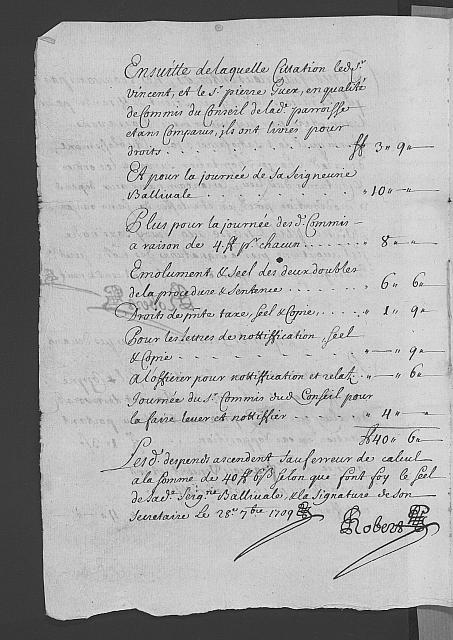 Ensuitte de laquelle Cittation led. Sr.
Vincent, et le Sr. pierre Guex, en qualité
de Commis du Conseil de lad. parroisse
etans Comparus, ils ont livrés pour
droits . . . . . . . . ff 3 " 9 " —
Et pour la journée de Sa Seigneurie
Ballivale . . . . . . . " 10 " — " —
Plus pour la journée des d. Commis
a raison de 4 ff pr. chacun . . . . . " 8 " — " —
Emolument & Seel des deux doubles
de la procedure & Sentence . . . . " 6 " 6 " —
Droits de pnte taxe, Seel & Copie, . . . " 1 " 9 " —
Pour les lettres de nottiffication, Seel
& Copie . . . . . . . . " — " 9 " —
a l'offitier pour nottiffication et relat. . . " — " 6 " —
Journée du Sr. Commis dud. Conseil pour
la faire lever et nottiffier . . . . . " 4 " — " —
ff 40 " 6 " —
Lesd. despends ascendent Sauf erreur de calcul
a la Somme de 40 ff 6 s. Selon que font foy le Seel
de Sad. Seigrie. Ballivale, & la Signature de Son
Secretaire Le 28e. 7bre 1709
Robert